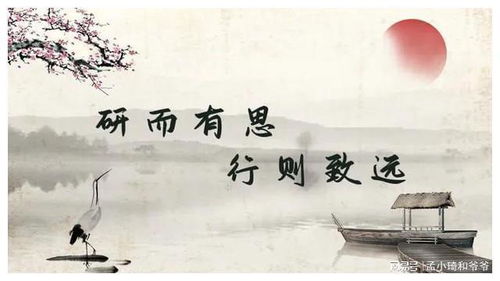 研而有思
行则致远
网易号 | 孟小琦和爷爷